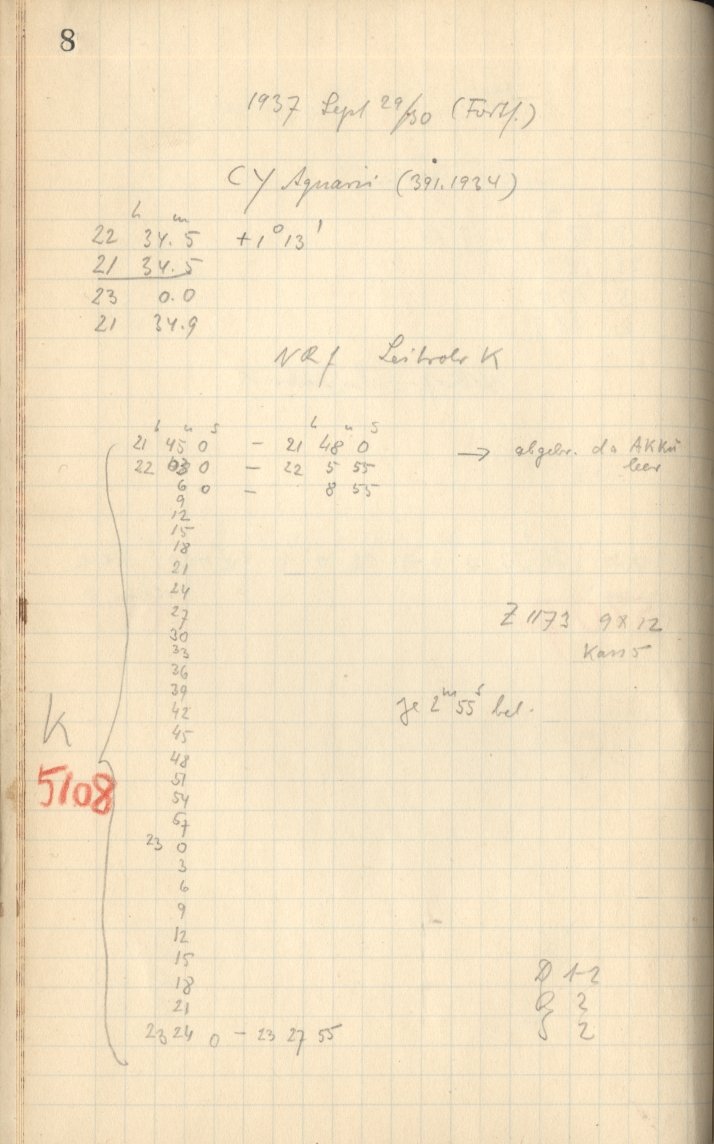 8
1937 Sept 29/30 (Fortf.)
CY Aquarii (391.1934)
h m
22 34.5 +1° 13'
21 34.5
23 0.0
21 34.9
Leitrohr K
h m s h m s
21 45 0 - 21 48 0 → abgebr. da AKKu
22 03 0 - 22 5 55 leer
6 0 - 8 55
9
12
15
18
21
24
27
30
33
36
39
42
45
48
51
54
57
23 0
3
6
9
12
15
18
21
23 24 0 - 23 27 55
Z 1173 9x12
Kass 5
je 2m 55s bel.
K
5108
D 1-2
2
2